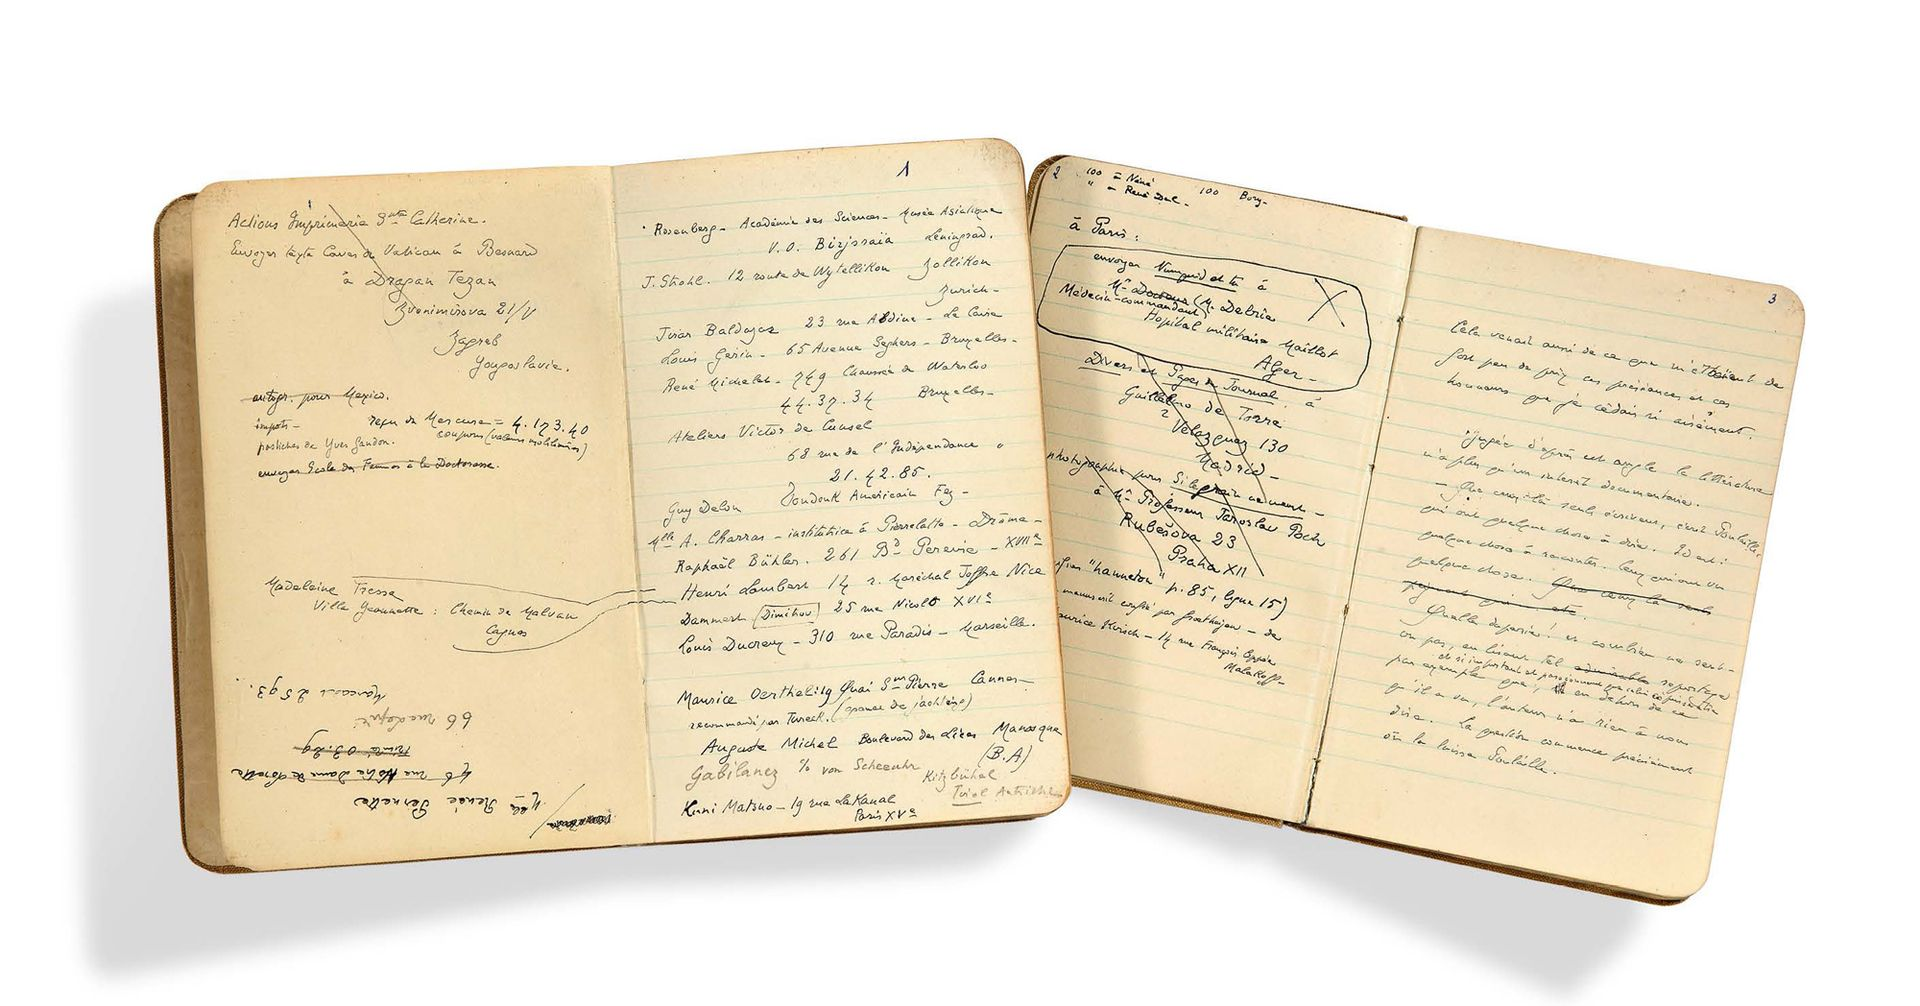 Actions Imprimerie Ste Catherine.
Envoyer texte Caves du Vatican à Besnard
à Dragan Tezan
Zvonimirova 21/V
Zagreb
Yougoslavie.
autogr. pour Mexico.
impots - reçu du Mercure = 4.173.40
coupons (valeurs mobilières)
postiches de Yves Gandon.
envoyer Ecole des Femmes à la Doctoresse.
Madeleine Tresse
Villa Jeannette : Chemin de Malvan
Cagnes
Mlle Renée Pernette
46 rue Notre Dame de Lorette
Trinité 03.29
66 rue
25 93.
1
Rosenberg - Académie des Sciences - Musée Asiatique
V.O. Birjssaïa Leningrad.
J. Strohl. 12 route de Wytellikon Zollikon
Zurich -
23 rue - Le Caire
Louis Gérin - 65 Avenue Seghers - Bruxelles -
René Michelet - 749 Chaussée de Waterloo
44.37.34 Bruxelles -
Ateliers Victor de Cunsel
68 rue de l'Indépendance "
21.42.85.
Guy Delon Fondouk Americain Fez -
Mlle A. Charras - institutrice à Pierrelatte - Drôme -
Raphaël Bühler. 261 Bd Pereire - XVIIe
Henri Lambert 14 r. Maréchal Joffre Nice
Dammert (Dimitrov) 25 rue Nicolo XVIe
Louis Ducreux - 310 rue Paradis - Marseille.
Maurice Oerthel 19 Quai St Pierre Cannes -
recommandé par Tureck. (garance de yachting)
Auguste Michel Boulevard des Lices Manosque
(B.A)
Gabilanez % von Scheeuhr Kitzbühel
Tirol Autriche
Kuni Matsuo - 19 rue Lakanal
Paris XVe
2 100 à Néné 100 Bury -
" à René Dul -
à Paris :
envoyer Numquid et tu à
Mr Docteur (M. Debrie
Médecin-commandant)
Hopital militaire Maillot
Alger -
Divers et Pages de Journal à
Guillermo de Torre
Velazquez 130
Madrid -
photographie pour Si le grain ne meurt -
à Mr Professeur Jaroslav Poch
Rubešova 23
Praha XII
"hanneton" p. 85, ligne 15)
manuscrit confié par Groethuysen - de
Maurice Kirsch - 14 rue François Coppée
Malakoff -
3
Cela venait aussi de ce que m'étaient de
fort peu de prix ces préséances et ces
honneurs que je cédais si aisément.
Jugée d'après cet angle la littérature
n'a plus qu'un intérêt documentaire.
- Que ceux-là seuls écrivent, écrit Poulaille,
qui ont quelque chose à dire. Id est :
quelque chose à raconter. Ceux qui ont vu
quelque chose. Que ceux là seuls
jugent qui etc.
Quelle duperie ! et combien ne sent-
on pas, en lisant tel admirable reportage
et si important et passionnant que
par exemple que, en dehors de ce
qu'il a vu, l'auteur n'a rien à nous
dire. La question commence précisément
où la laisse Poulaille.